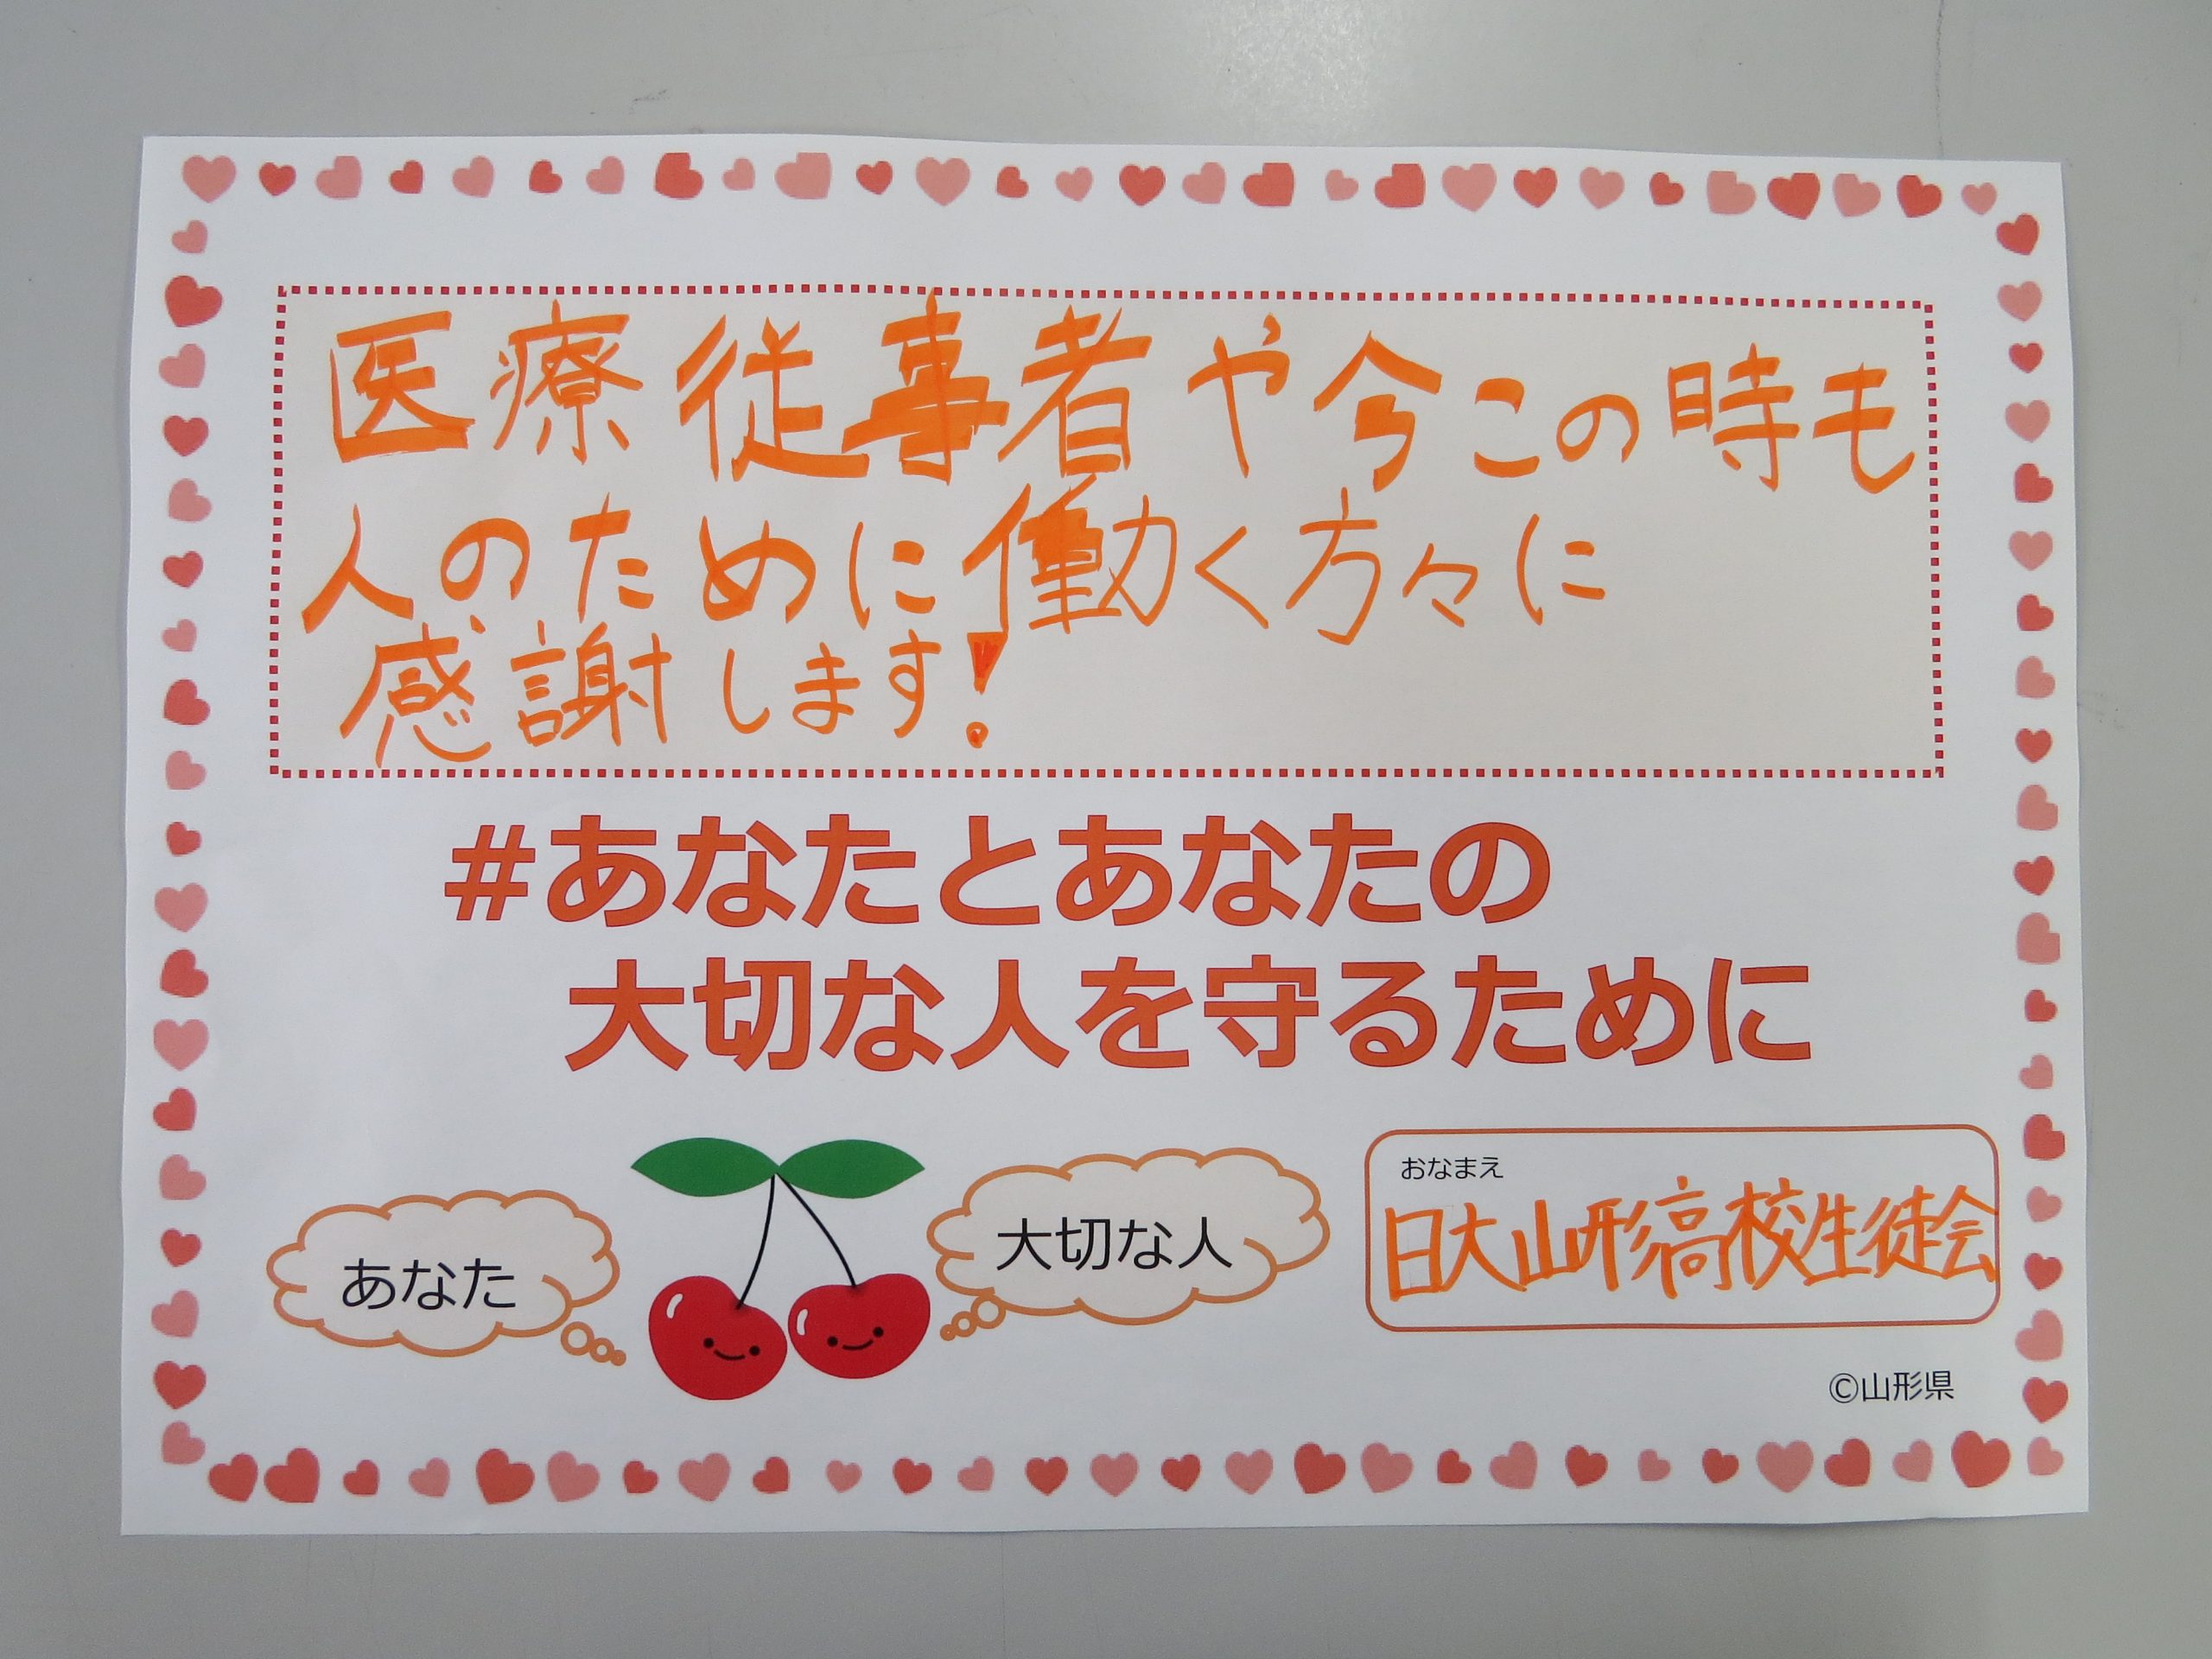 医療従事者や今この時も
人のために働く方々に
感謝します!
#あなたとあなたの
大切な人を守るために
あなた
大切な人
おなまえ
日大山形高校生徒会
©山形県